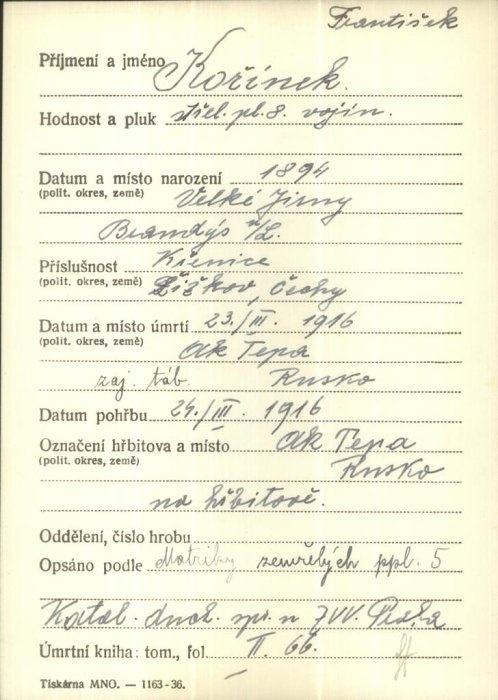 František
Příjmení a jméno Kořínek.
Hodnost a pluk střel. pl. 8. vojín.
Datum a místo narození 1894
(polit. okres, země) Velké Jirny
Brandýs n/L.
Příslušnost Křenice
(polit. okres, země) Žižkov, Čechy
Datum a místo úmrtí 23./III. 1916
(polit. okres, země) Ak Tepa
zaj. táb. Rusko
Datum pohřbu 24./III. 1916
Označení hřbitova a místo Ak Tepa
(polit. okres, země) Rusko
na hřbitově.
Oddělení, číslo hrobu
Opsáno podle Matriky zemřelých ppl. 5
Katol. duch. spr. u ZVV. Praha
Úmrtní kniha: tom., fol. II. 66.
Tiskárna MNO. — 1163-36.